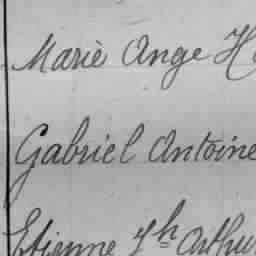 Marie Ange
Gabriel Antoine
Etienne Jh Arthu